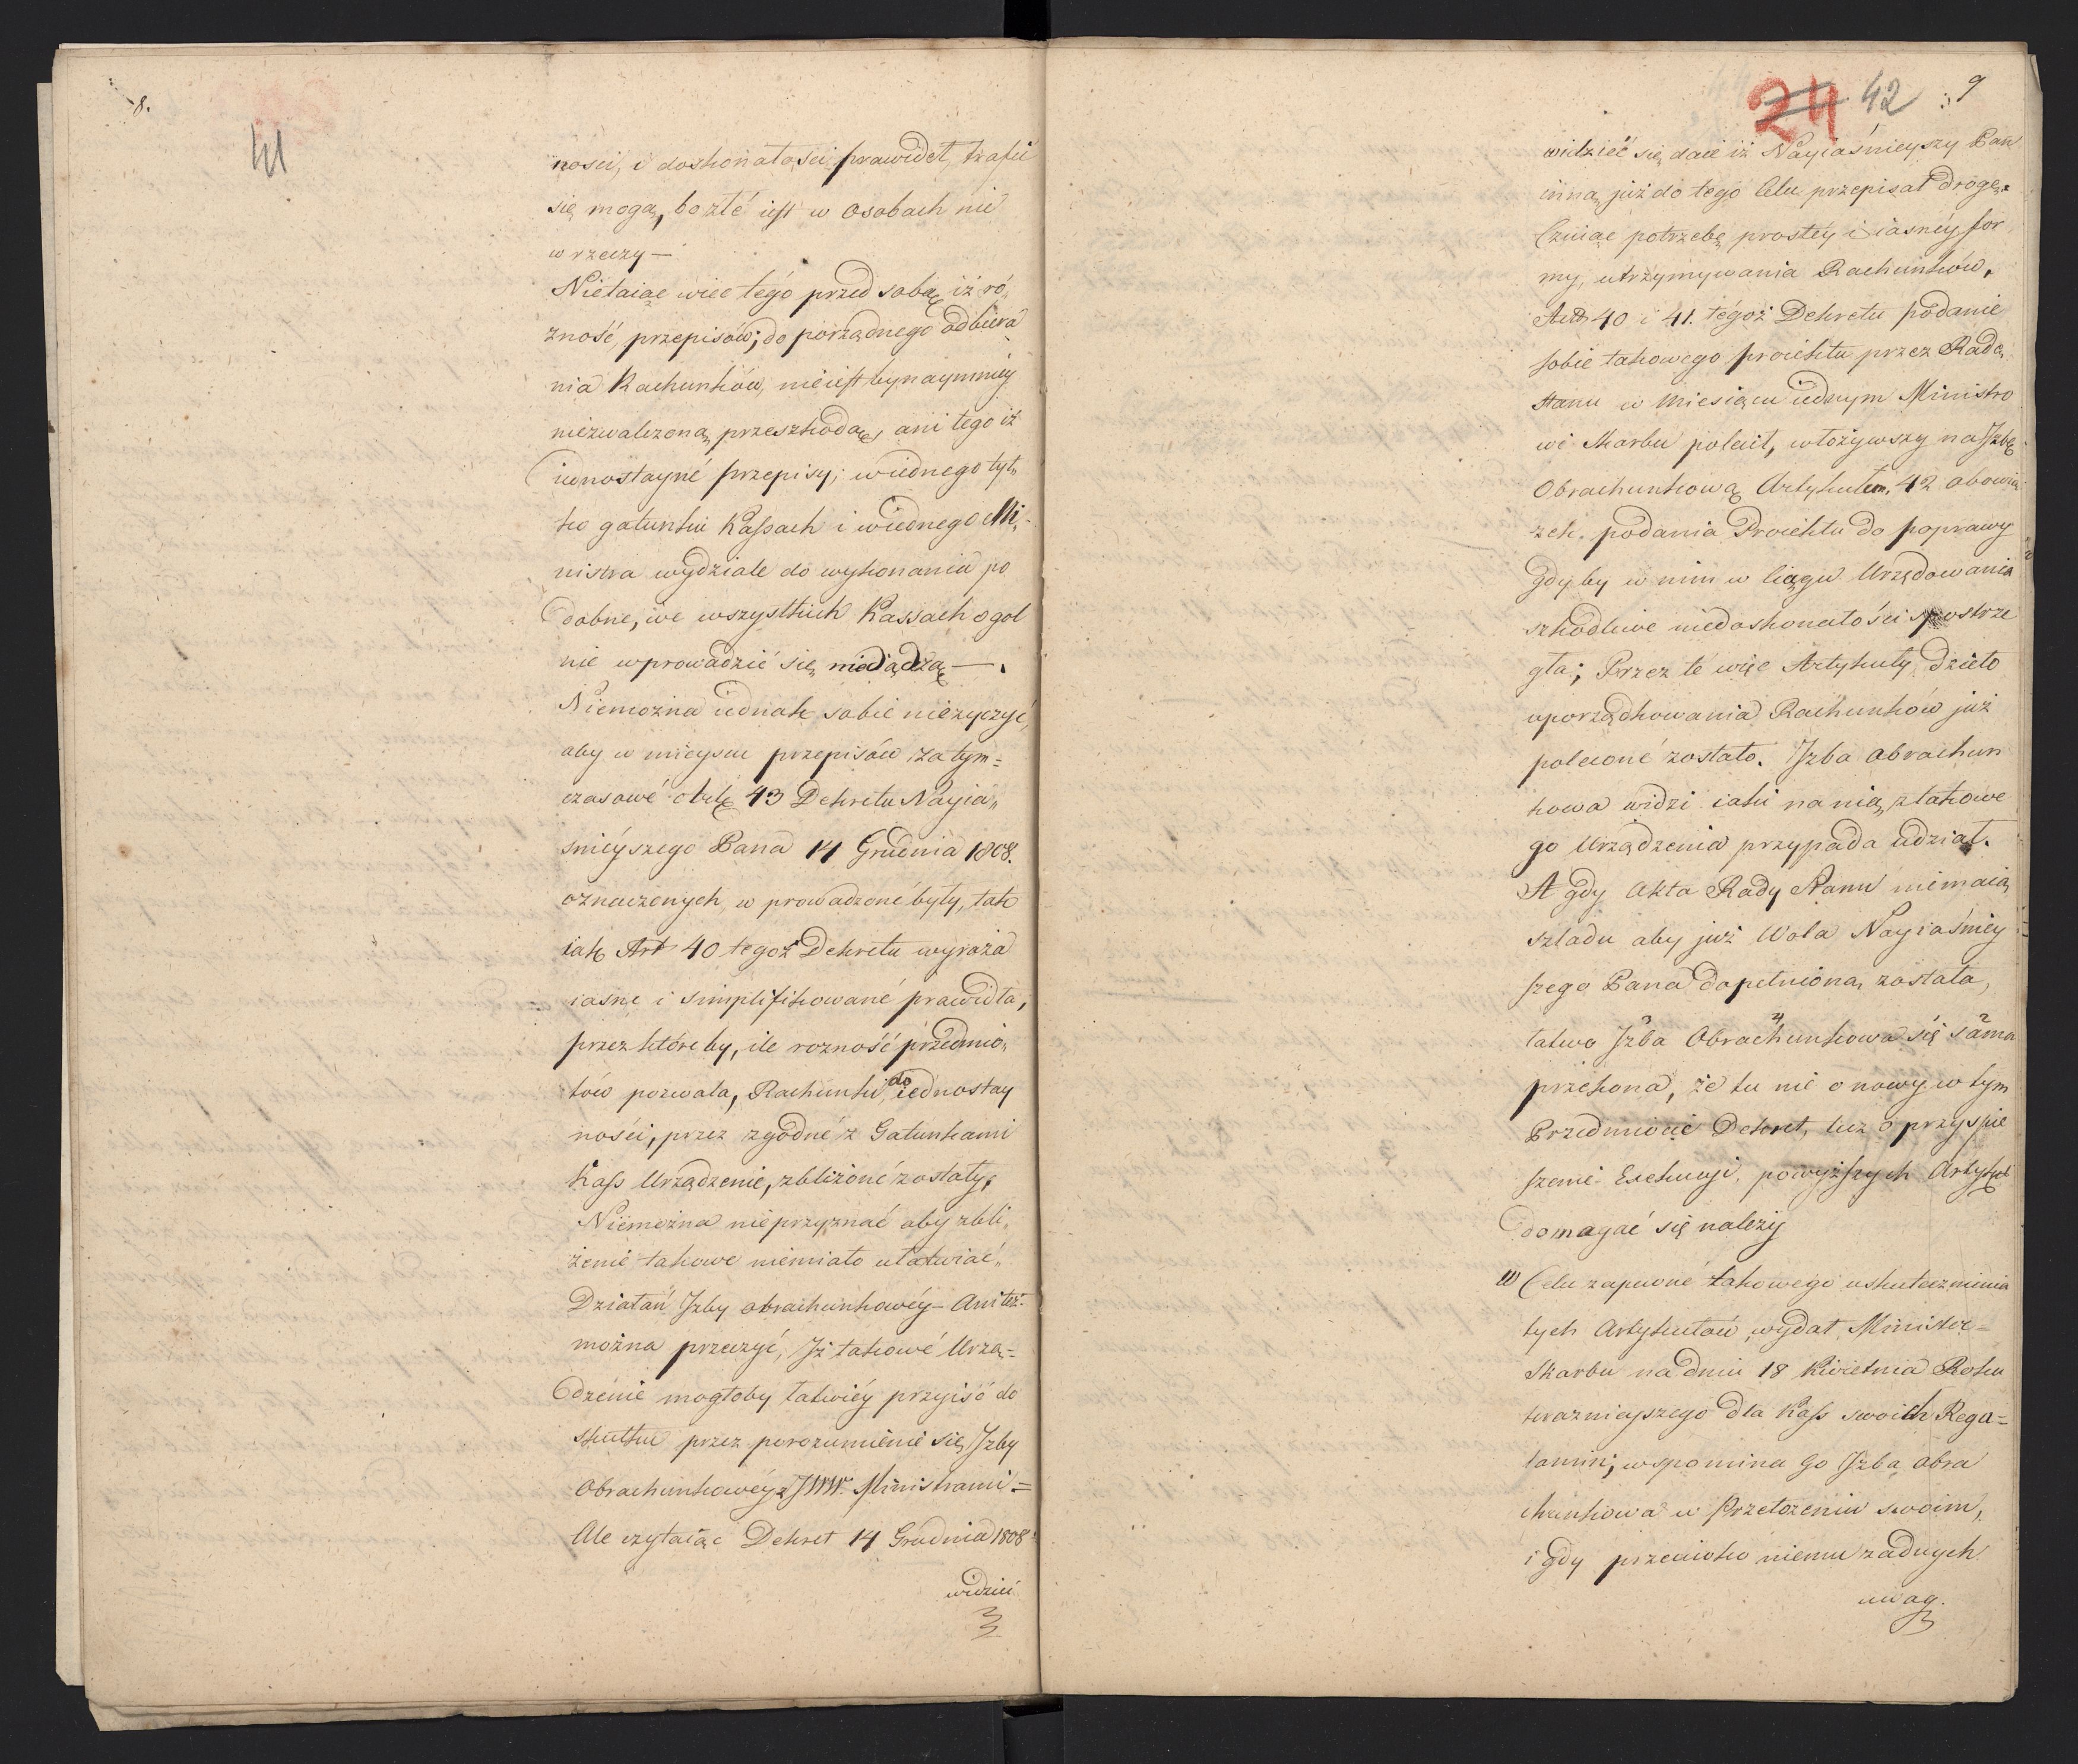 8.
41
ności, i doskonałości prawideł, trafić
się mogą, bo złe iest w Osobach nie
w rzeczy —
Nietaiąc więc tego przed sobą iż ró„
żność przepisów; do porządnego odbiera
nia Rachunków, nieiest bynaymniey
niezwalczoną przeszkodą, ani tego iż
iednostayne przepisy; w iednego tyl„
ko gatunku Kassach i w iednego Mi„
nistra wydziale do wykonania po
dobne, we wszystkich Kassach ogol
nie wprowadzić się niedadzą —.
Niemożna iednak sobie nieżyczyć,
aby w mieyscu przepisów za tym=
czasowe Art. 43 Dekretu Nayia„
śnieyszego Pana 14 Grudnia 1808.
oznaczonych, wprowadzone były, tak
iak Art 40 tegoż Dekretu wyraża
iasne i simplifikowane prawidła,
przez które by, ile rozność przedmio„
tów pozwala, Rachunki do iednostay
ności, przez zgodne z Gatunkami
Kass Urządzenie, zbliżone zostały,
Niemożna nieprzyznać aby zbli„
żenie takowe niemiało ułatwiać„
Działań Izby obrachunkowéy — Ani też.
można przeczyć, Iż takowé Urzą=
dzenie mogłoby łatwiéy przyiść do
skutku przez porozumienie się Izby
Obrachunkowéy z JWW. Ministrami =
Ale czytaiąc Dekret 14 Grudnia 1808
widzieć
24 42 9
widzieć się daie iż Nayiaśnieyszy Pan
inną już do tego Celu przepisał drogę.
Czuiąc potrzebę prostéy i iasnéy for
my, utrzymywania Rachunków,
Art 40 i 41. tegoż Dekretu podanie
sobie takowego proiektu przez Radę
Stanu w Miesiącu iednym Ministro
wi Skarbu polecił, włożywszy na Izbę
Obrachunkową Artykułem. 42 obowią
zek. podania Proiektu do poprawy
gdyby w nim w Ciągu Urzędowania
szkodliwe niedoskonałości spostrze
gła; Przez te więc Artykuły dzieło
uporządkowania Rachunków już
polecone zostało. Izba obrachun
kowa widzi iaki na nią z takowe
go Urządzenia przypada udział.
A gdy Akta Rady Stanu niemaią
szladu aby już Wola Nayiaśniey
szego Pana dopełnioną została,
łatwo Izba Obrachunkowa się sama
przekona, że tu nie o nowy w tym
Przedmiocie Dekret, lecz o przyspie
szenie Exekucyi, powyższych Artykuł
domagać się należy
W Celu zapewne takowego uskutecznienia
tych Artykułów, wydał Minister=
Skarbu na dniu 18 Kwietnia Roku
teraznieyszego dla Kass swoich Regu=
lamin, wspomina Go Izba obra
chunkowa w Przełożeniu swoim,
i gdy przeciwko niemu żadnych
uwag.